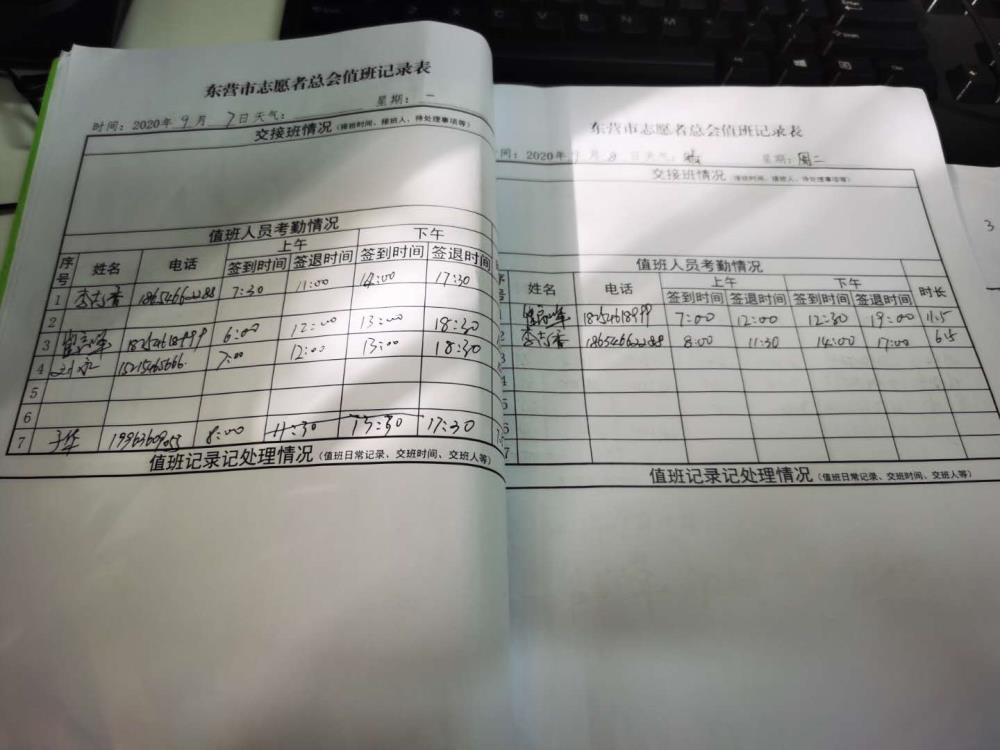 东营市志愿者总会值班记录表
时间：2020年 9 月 7 日天气： 星期：一
交接班情况（接班时间、接班人、待处理事项等）
值班人员考勤情况
序号 姓名 电话 上午 下午
签到时间 签退时间 签到时间 签退时间
1 李志香 18654662288 7:30 11:00 14:00 17:30
2
3 18254618999 6:00 12:00 13:00 18:30
4 刘永 15215465666 7:00 12:00 13:00 18:30
5
6
7 于华 8:00 11:30 13:30 17:30
值班记录记处理情况（值班日常记录、交班时间、交班人等）
东营市志愿者总会值班记录表
间：2020年 9 月 8 日天气：晴 星期：周二
交接班情况（接班时间、接班人、待处理事项等）
值班人员考勤情况
序号 姓名 电话 上午 下午 时长
签到时间 签退时间 签到时间 签退时间
1 18254618999 7:00 12:00 12:30 19:00 11.5
2 李志香 18654662288 8:00 11:30 14:00 17:00 6.5
3
4
5
6
7
值班记录记处理情况（值班日常记录、交班时间、交班人等）
3